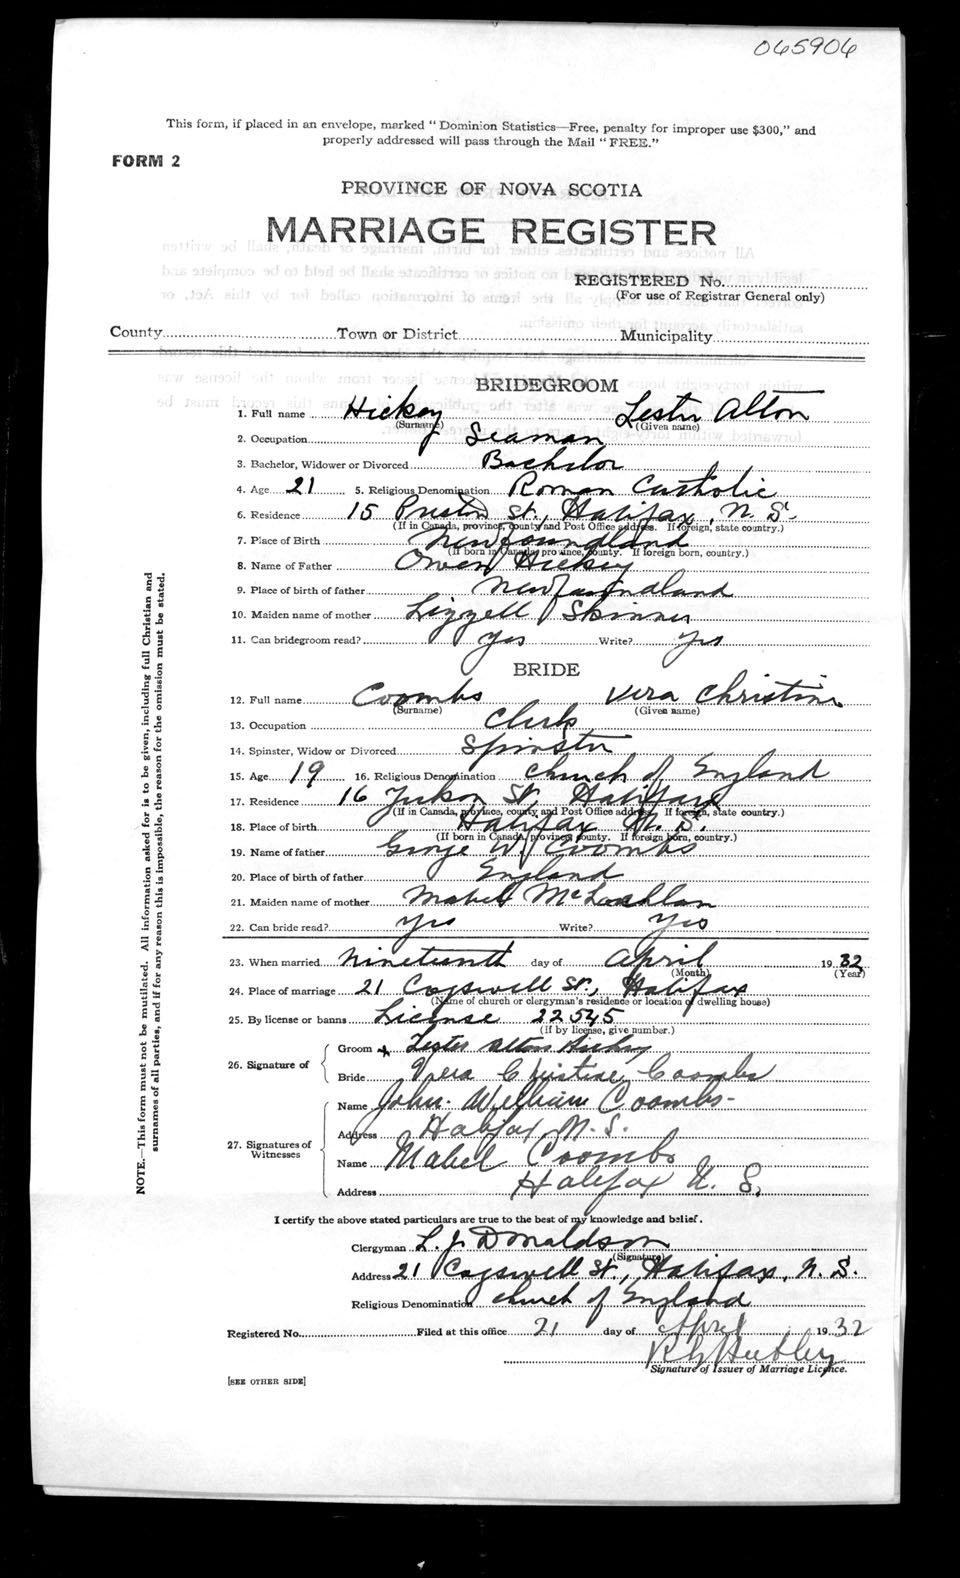 065906
This form, if placed in an envelope, marked " Dominion Statistics—Free, penalty for improper use $300," and
properly addressed will pass through the Mail " FREE."
FORM 2
PROVINCE OF NOVA SCOTIA
MARRIAGE REGISTER
REGISTERED No.
(For use of Registrar General only)
County Town or District Municipality
BRIDEGROOM
1. Full name Hickey Lester Alton
(Surname) (Given name)
2. Occupation Seaman
3. Bachelor, Widower or Divorced Bachelor
4. Age 21 5. Religious Denomination Roman Catholic
6. Residence 15 Preston St., Halifax, N. S.
(If in Canada, province, county and Post Office address. If foreign, state country.)
7. Place of Birth Newfoundland
(If born in Canada, province, county. If foreign born, country.)
8. Name of Father Owen Hickey
9. Place of birth of father Newfoundland
10. Maiden name of mother Lizzell Skinner
11. Can bridegroom read? yes Write? yes
BRIDE
12. Full name Coombs Vera Christine
(Surname) (Given name)
13. Occupation Clerk
14. Spinster, Widow or Divorced Spinster
15. Age 19 16. Religious Denomination Church of England
17. Residence 16 Yukon St. Halifax
(If in Canada, province, county and Post Office address. If foreign, state country.)
18. Place of birth Halifax N. S.
(If born in Canada, province county. If foreign born, country.)
19. Name of father George W. Coombs
20. Place of birth of father England
21. Maiden name of mother Mabel McLachlan
22. Can bride read? yes Write? yes
23. When married Nineteenth day of April 19 32
(Month) (Year)
24. Place of marriage 21 Cogswell St., Halifax
(Name of church or clergyman's residence or location of dwelling house)
25. By license or banns License 22545
(if by license, give number.)
26. Signature of
Groom Lester Alton Hickey
Bride Vera Christine Coombs
27. Signatures of Witnesses
Name John William Coombs
Address Halifax N. S.
Name Mabel Coombs
Address Halifax N. S.
I certify the above stated particulars are true to the best of my knowledge and belief.
Clergyman L. J. Donaldson
(Signature)
Address 21 Cogswell St., Halifax, N. S.
Religious Denomination Church of England
Registered No. Filed at this office 21 day of April 19 32
Signature of Issuer of Marriage Licence.
[SEE OTHER SIDE]
NOTE.—This form must not be mutilated. All information asked for is to be given, including full Christian and
surnames of all parties, and if for any reason this is impossible, the reason for the omission must be stated.